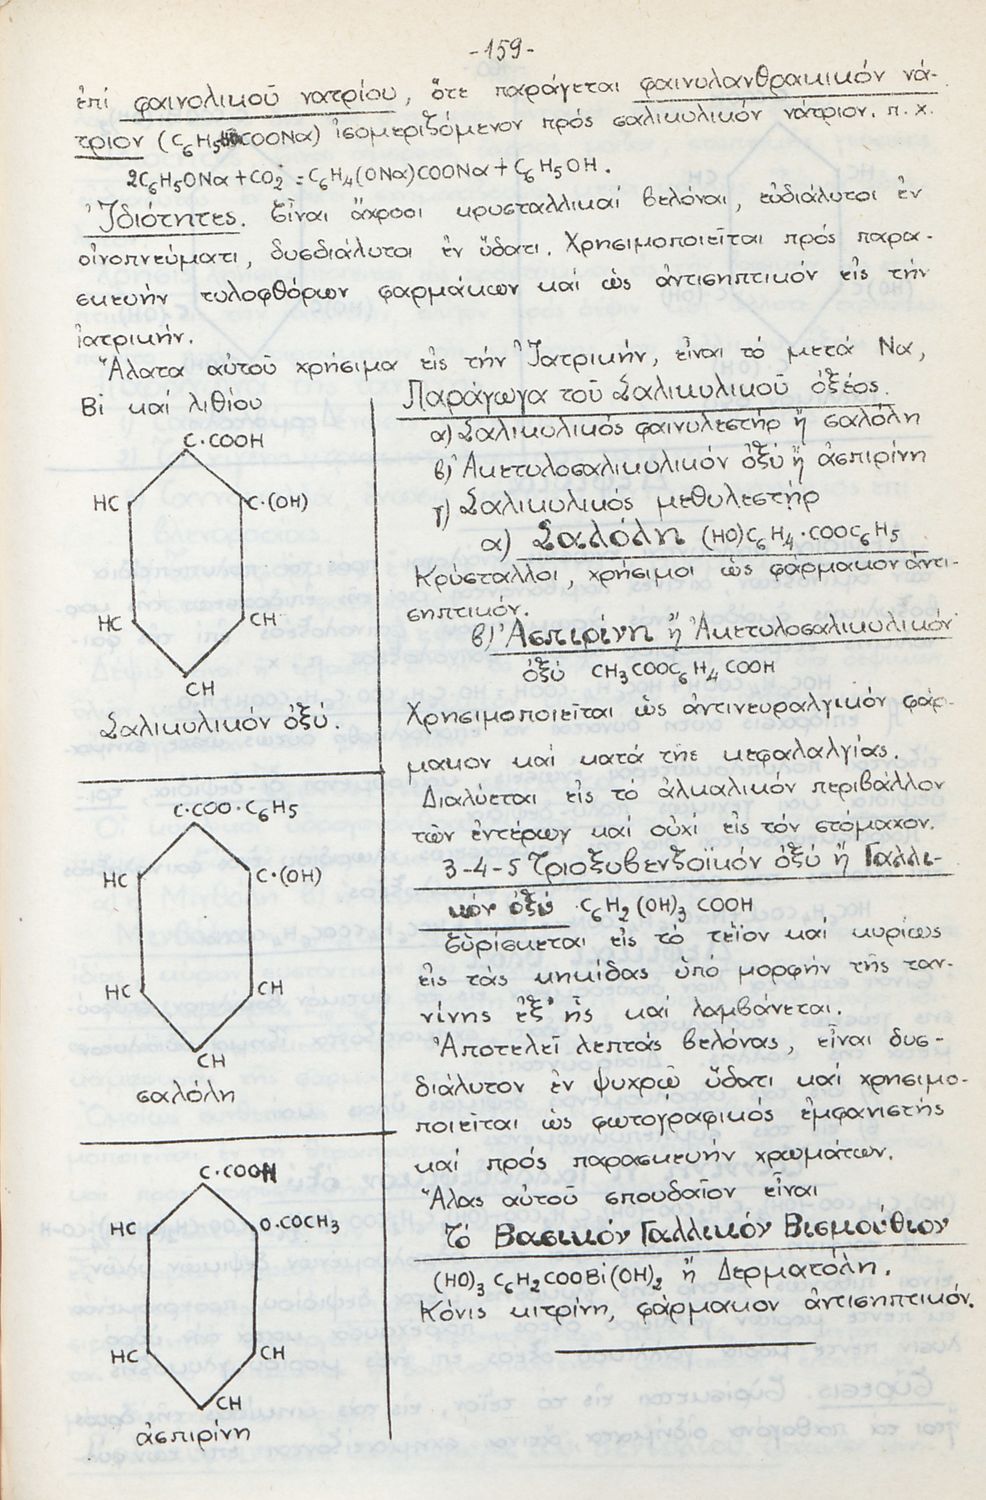 -159-
ἐπί φαινολικοῦ νατρίου, ὅτε παράγεται φαινυλανθρακικόν νά-
τριον (C6H5COONα) ἰσομεριζόμενον πρός σαλικυλικόν νάτριον. π.χ.
2C6H5ONα + CO2 = C6H4(ONα)COONα + C6H5OH.
Ἰδιότητες. Εἶναι ἄχροοι κρυσταλλικαί βελόναι, εὐδιάλυτοι ἐν
οἰνοπνεύματι, δυσδιάλυτοι ἐν ὕδατι. Χρησιμοποιεῖται πρός παρα-
σκευήν τυλοφθόρων φαρμάκων καί ὡς ἀντισηπτικόν εἰς τήν
ἰατρικήν.
Ἅλατα αὐτοῦ χρήσιμα εἰς τήν Ἰατρικήν, εἶναι τό μετά Να,
Βi καί λιθίου
C·COOH
HC
C·(OH)
HC
CH
CH
Σαλικυλικον ὀξύ.
C·COO·C6H5
HC
C·(OH)
HC
CH
CH
σαλόλη
C·COOH
HC
O·COCH3
HC
CH
CH
ἀσπιρίνη
Παράγωγα τοῦ Σαλικυλικοῦ ὀξέος.
α) Σαλικυλικός φαινυλεστήρ ἤ σαλόλη
β) Ἀκετυλοσαλικυλικόν ὀξύ ἤ ἀσπιρίνη
γ) Σαλικυλικός μεθυλεστήρ
α) Σαλόλη (HO)C6H4·COOC6H5
Κρύσταλλοι, χρήσιμοι ὡς φάρμακον ἀντι-
σηπτικόν.
β) Ἀσπιρίνη ἤ Ἀκετυλοσαλικυλικόν
ὀξύ CH3COOC6H4COOH
Χρησιμοποιεῖται ὡς ἀντινευραλγικόν φάρ-
μακον καί κατά τῆς κεφαλαλγίας.
Διαλύεται εἰς τό ἀλκαλικόν περιβάλλον
τῶν ἐντέρων καί οὐχί εἰς τόν στόμαχον.
3-4-5 Τριοξυβενζοικόν ὀξύ ἤ Γαλλι-
κόν ὀξύ C6H2(OH)3COOH
Εὑρίσκεται εἰς τό τεΐον καί κυρίως
εἰς τάς κηκίδας ὑπό μορφήν τῆς ταν-
νίνης ἐξ ἧς καί λαμβάνεται.
Ἀποτελεῖ λεπτάς βελόνας, εἶναι δυσ-
διάλυτον ἐν ψυχρῷ ὕδατι καί χρησιμο-
ποιεῖται ὡς φωτογραφικός ἐμφανιστής
καί πρός παρασκευήν χρωμάτων.
Ἅλας αὐτοῦ σπουδαῖον εἶναι
Τό Βασικόν Γαλλικόν Βισμούθιον
(HO)3C6H2COOBi(OH)2 ἤ Δερματόλη.
Κόνις κιτρίνη, φάρμακον ἀντισηπτικόν.